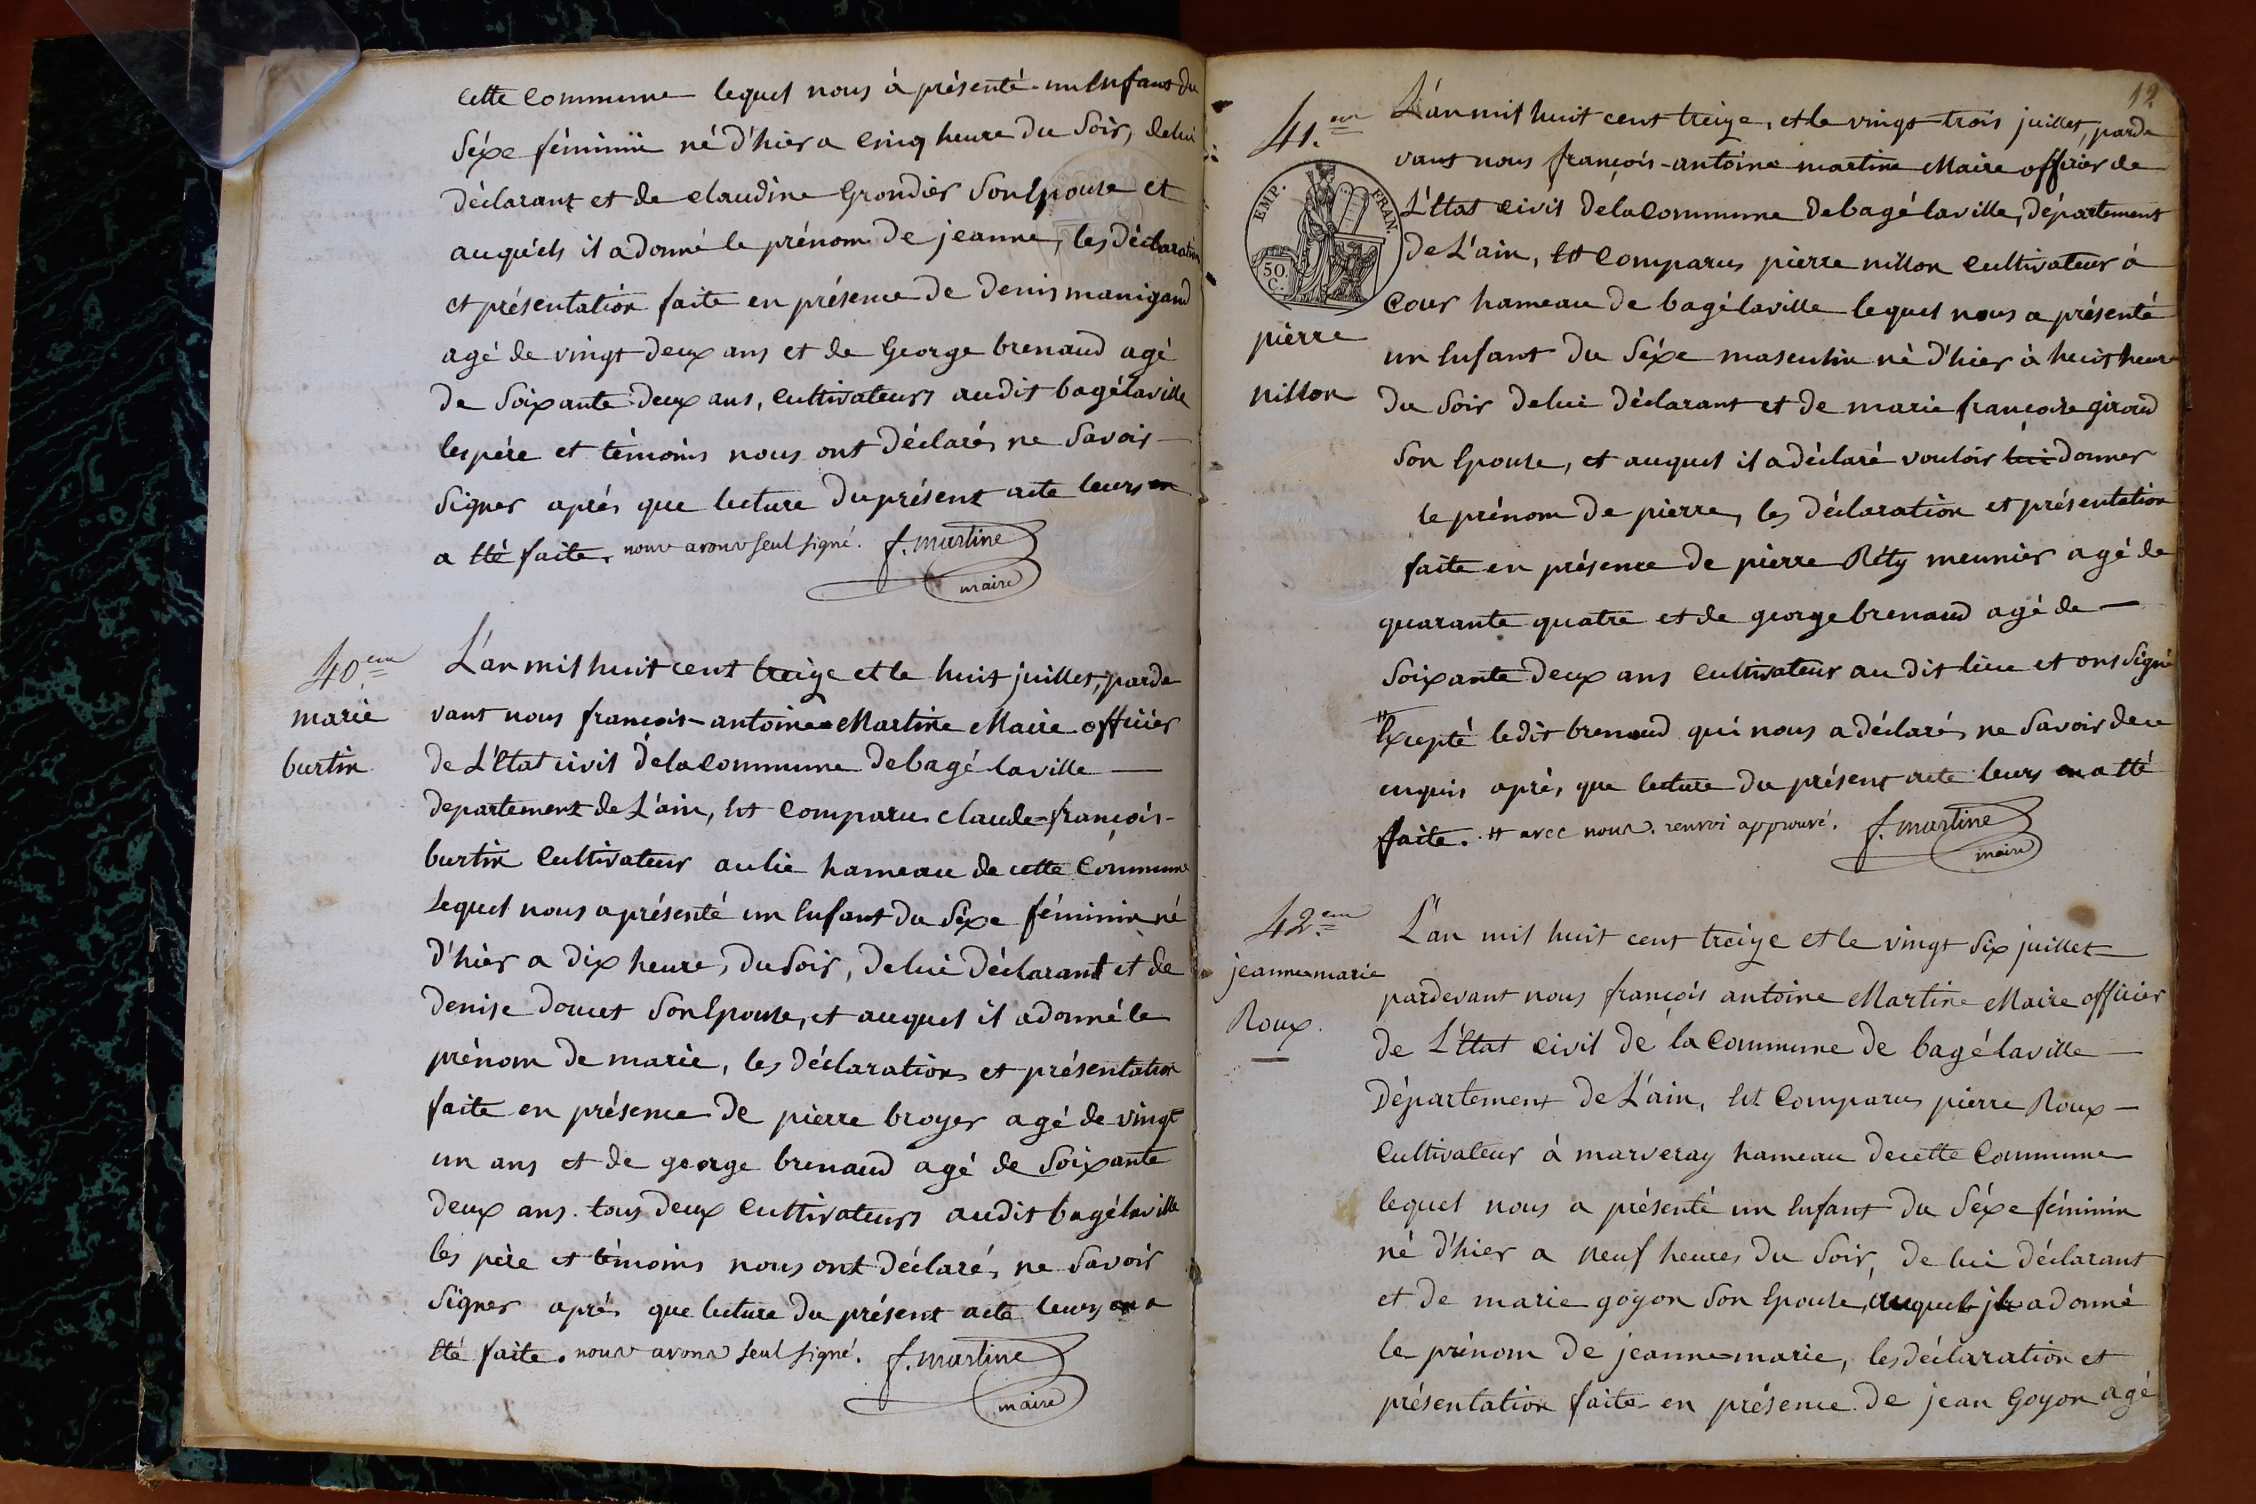 cette commune lequel nous à présenté un Enfant du
Séxe féminin né d'hier a cinq heure du Soir, delui
déclarant et de claudine Grondier Son Epouse et
auquels il a donné le prénom de jeanne, les déclaration
et présentation faite en présence de denis manigand
agé de vingt deux ans et de George brenaud agé
de Soixante deux ans, cultivateurs audit bagélaville
les pére et témoins nous ont déclarés ne Savoir
Signer aprés que lecture du présent acte leurs en
a Eté faite. nous avons seul signé. f. martine
maire
40.em
marie
burtin
L'an mil huit cent treize et le huit juillet, parde
vant nous françois-antoine Martine Maire officier
de L'Etat civil delacommune debagé laville
departement de L'ain, Est comparu claude-françois-
burtin cultivateur aulie hameau de cette commune
Lequel nous a présenté un Enfant du Séxe féminin né
d'hier a dix heure, du Soir, delui déclarant et de
denise doucet Son Epouse, et auquel il adonné le
prénom de marie, les déclarations et présentation
faite en présence de pierre broyer agé de vingt
un ans et de george brenaud agé de Soixante
deux ans. tous deux cultivateurs audit bagélaville
les père et témoins nous ont déclarés ne Savoir
Signer aprés que lecture du présent acte leurs en a
Eté faite. nous avons seul signé. f. martine
maire
12
41.em
EMP. FRAN.
50.
C.
pierre
nillon
L'an mil huit cent treize, et le vingt-trois juillet, parde
vant nous françois-antoine martine Maire officier de
L'Etat civil delacommune debagélaville, département
de L'ain, Est comparus pierre nillon cultivateur à
cour hameau de bagélaville lequel nous a présenté
un Enfant du Séxe masculin né d'hier à huit heure
du Soir delui déclarant et de marie françoise giroud
Son Epouse, et auquel il a déclaré vouloir lui donner
le prénom de pierre, les déclaration et présentation
faite en présence de pierre Réty meunier agé de
quarante quatre et de george brenaud agé de
Soixante deux ans cultivateur au dit lieu et ont Signé
# Excepté ledit brenaud qui nous a déclarés ne Savoir dece
enquis aprés que lecture du présent acte leurs en a Eté
faite. # avec nous. renvoi approuvé. f. martine
maire
42.em
jeanne marie
Roux.
L'an mil huit cent treize et le vingt Six juillet
pardevant nous françois antoine Martine Maire officier
de L'Etat civil de la commune de bagélaville
Département de L'ain, Est comparus pierre Roux
cultivateur à marveray hameau decette commune
lequel nous a présenté un Enfant du Séxe féminin
né d'hier a neuf heures du Soir, de lui déclarant
et de marie goyon Son Epouse, auquel il a donné
le prénom de jeanne marie, les déclaration et
présentation faite en présence de jean Goyon agé